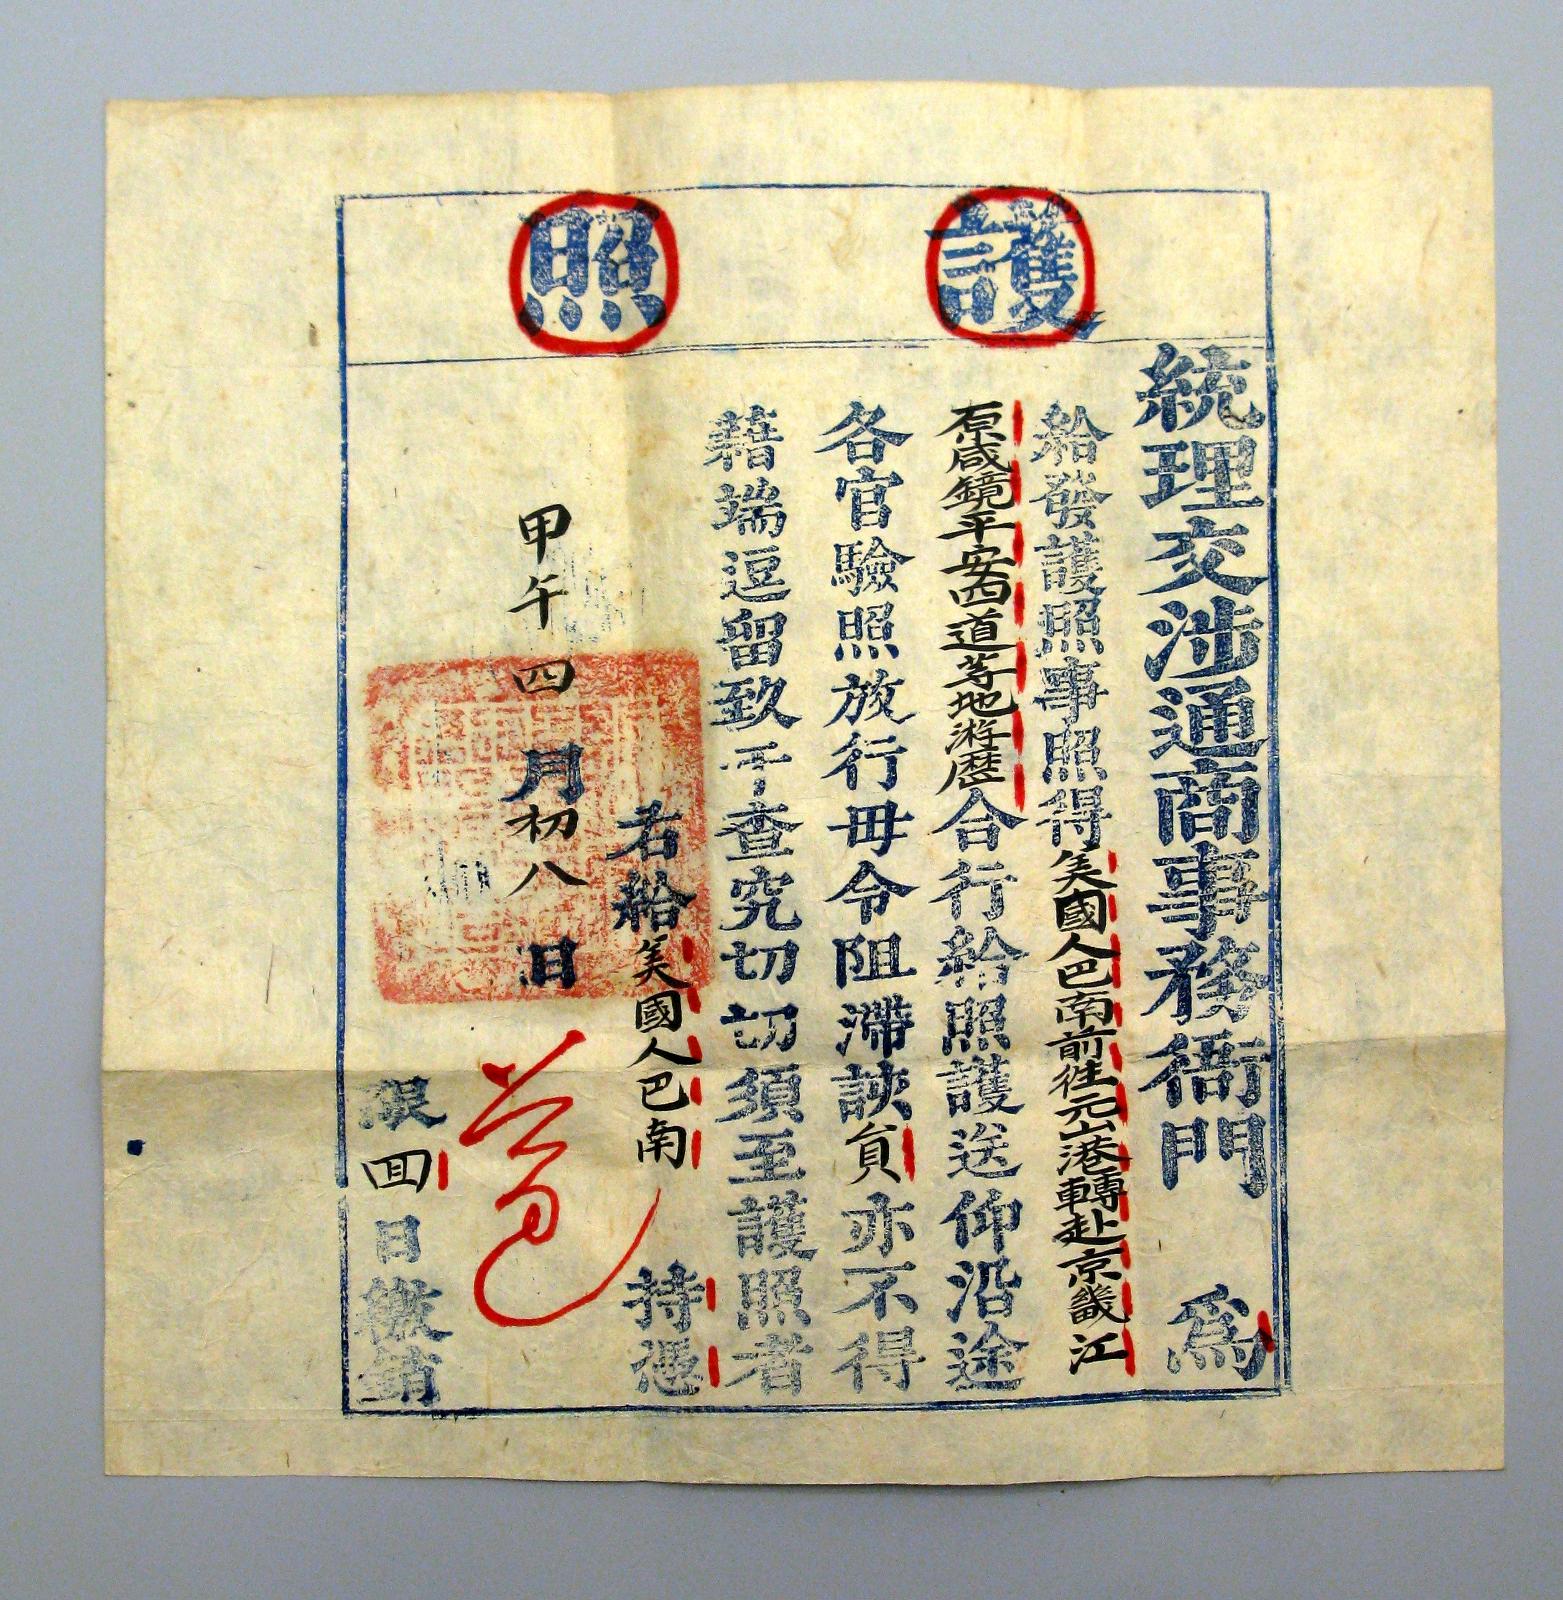 護照
統理交涉通商事務衙門 爲
給發護照事照得美國人巴南前徃元山港轉赴京畿江
原咸鏡平安四道等地游歷合行給照護送仰沿途
各官驗照放行毋令阻滯該員亦不得
藉端逗留致干查究切切須至護照者
右給美國人巴南 持憑
甲午四月初八日
限 回日繳銷